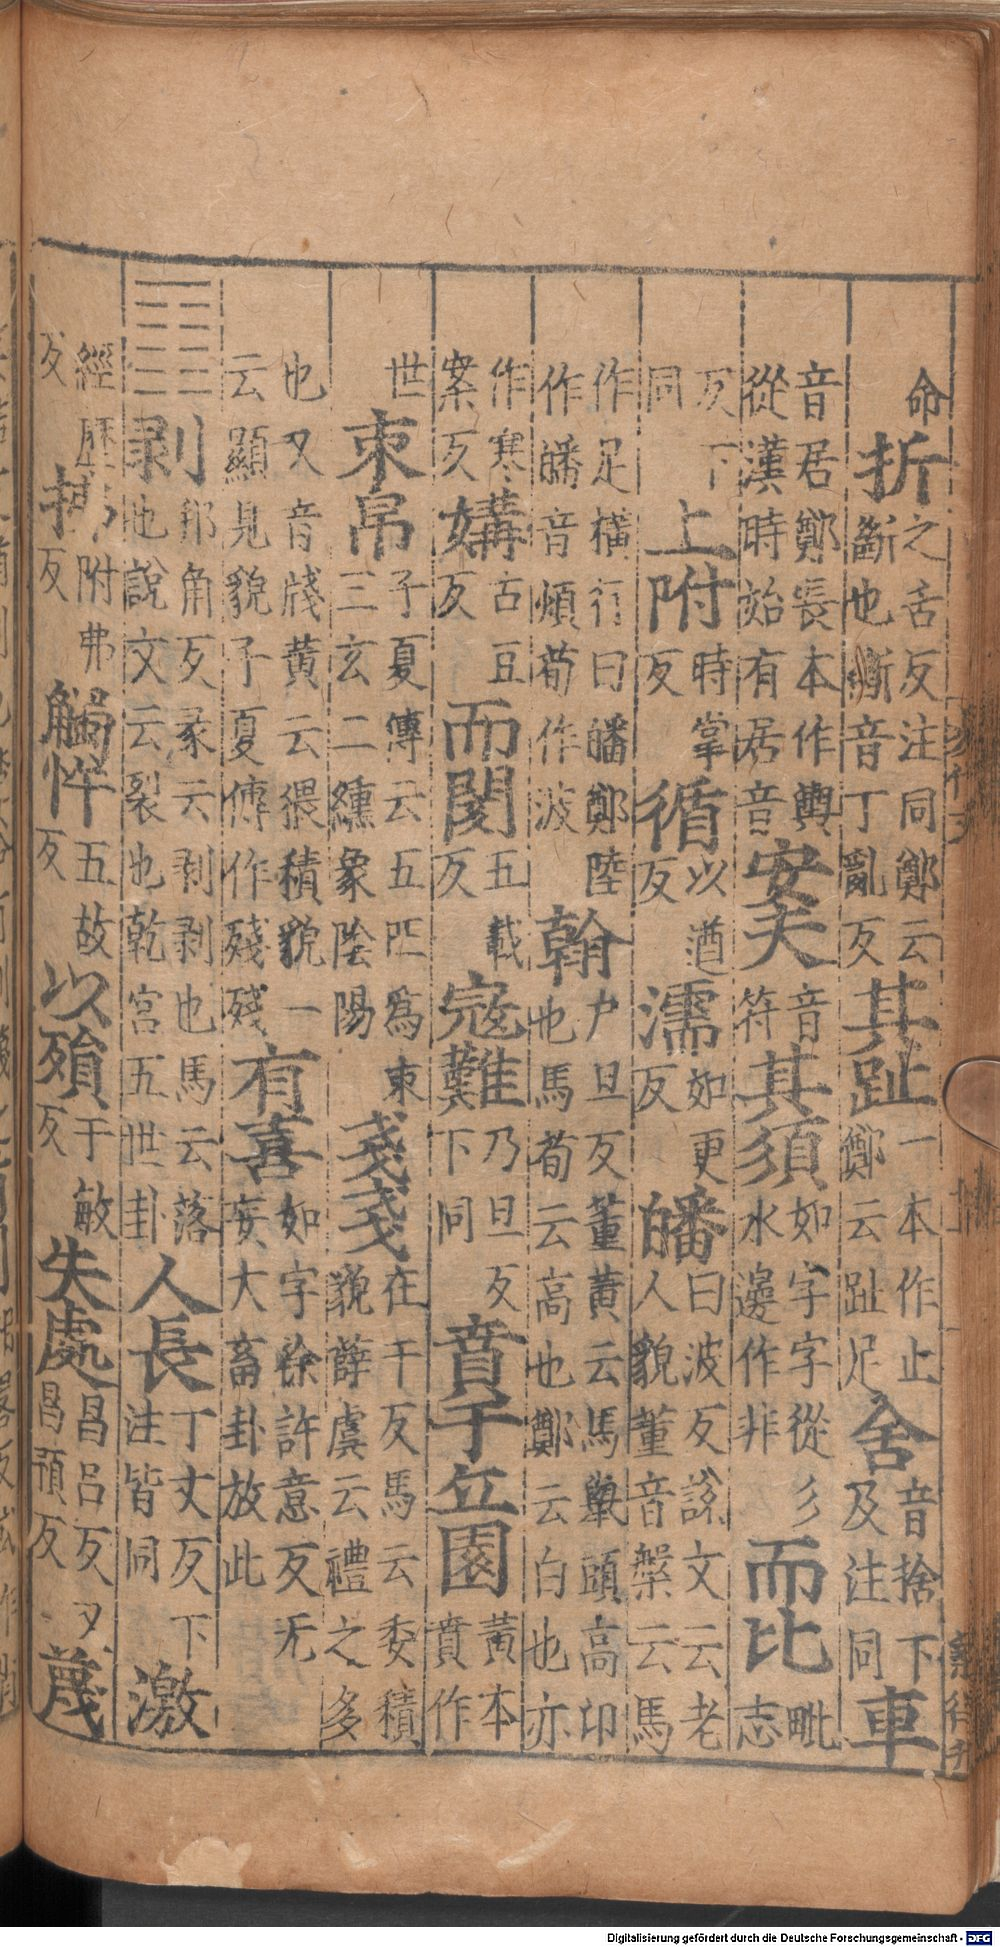 命折之舌反注同鄭云斷也斷音丁亂反其趾一本作止鄭云趾足舍音捨下及注同車
音居鄭張本作輿從漢時始有居音安夫音符其須如字字從彡水邊作非而比毗志
反下同上附時掌反循以遒反濡如更反皤曰波反說文云老人貌董音槃云馬
作足橫行曰皤鄭陸作皤音煩荀作波翰戶旦反董黃云馬舉頭高卬也馬荀云高也鄭云白也亦
作寒案反媾古豆反而閡五載反寇難乃旦反下同賁于丘園黃本賁作
世束帛子夏傳云五匹為束三玄二纁象陰陽戔戔在干反馬云委積貌薛虞云禮之多
也又音牋黃云猥積貌一云顯見貌子夏傳作殘殘有喜如字徐許意反无妄大畜卦放此
䷖剝邦角反彖云剥剥也馬云落也說文云裂也乾宮五世卦人長丁丈反下注皆同激
經歷反拂附弗反觸忤五故反以殞于敏反失處昌呂反又昌預反蔑
Digitalisierung gefördert durch die Deutsche Forschungsgemeinschaft - DFG